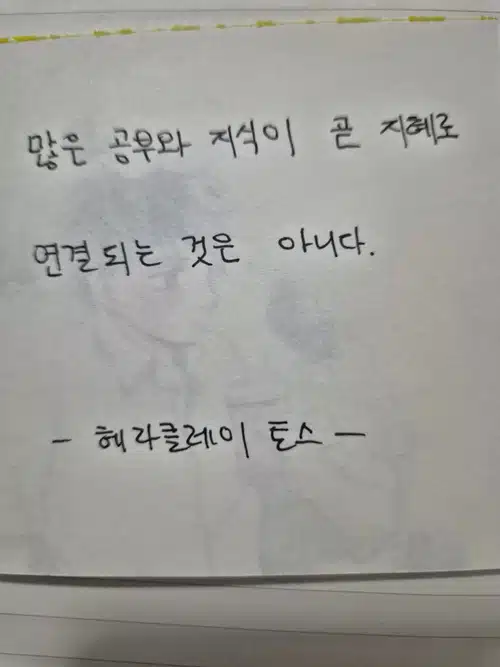 많은 공부와 지식이 곧 지혜로
연결되는 것은 아니다.
- 헤라클레이토스 -